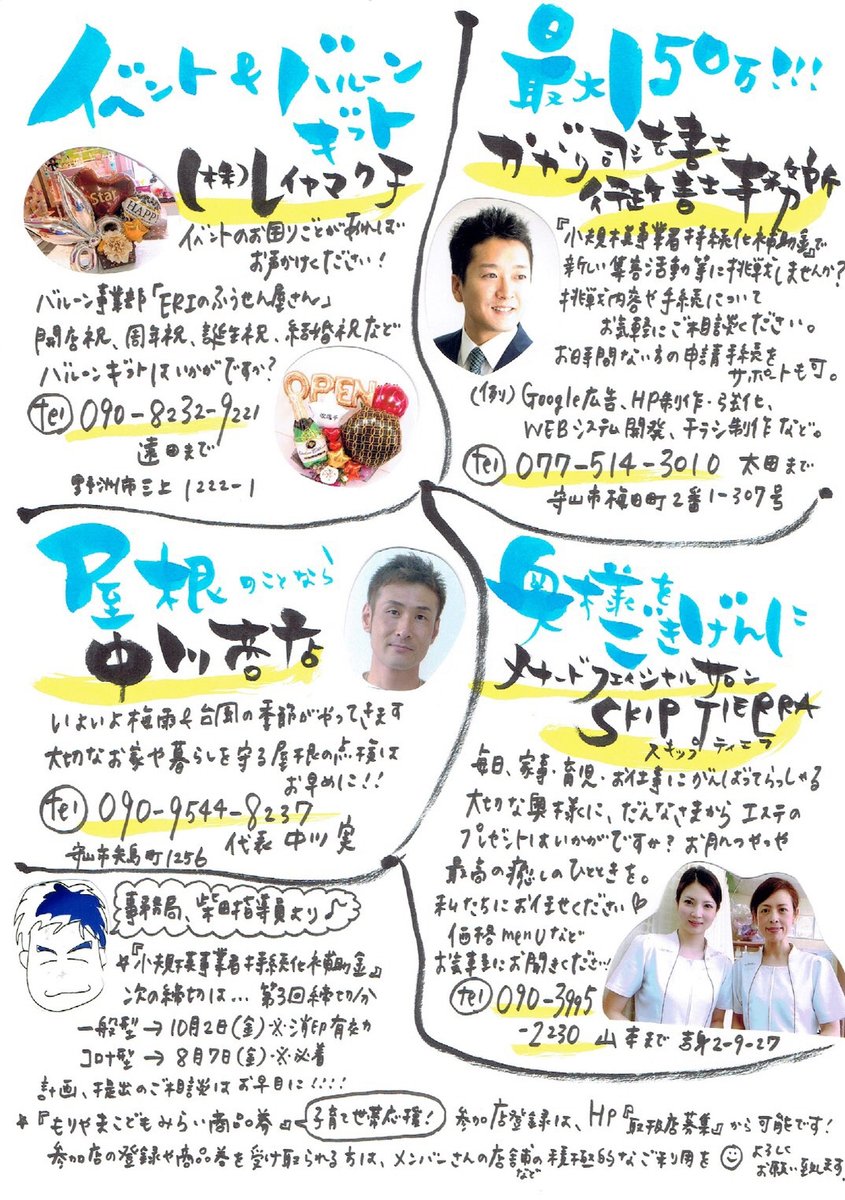 イベント&バルーン
ギフト
(株)レイヤマグチ
イベントのお困りごとがあれば
お声かけください!
バルーン事業部「ERIのふうせん屋さん」
開店祝、周年祝、誕生祝、結婚祝など
バルーンギフトはいかがですか?
tel 090-8232-9221
遠田まで
野洲市三上1222-1
stay
HAPPY
OPEN
最大150万!!!
かがり司法書士
行政書士事務所
『小規模事業者持続化補助金』で
新しい集客活動等に挑戦しませんか?
挑戦内容や手続について
お気軽にご相談ください。
お時間ない方の申請手続を
サポートも可。
(例)Google広告、HP制作・強化、
WEBシステム開発、チラシ制作など。
tel 077-514-3010 太田まで
守山市梅田町2番1-307号
屋根のことなら
中川商店
いよいよ梅雨&台風の季節がやってきます
大切なお家や暮らしを守る屋根の点検は
お早めに!!
tel 090-9544-8237
代表 中川 実
守山市矢島町1256
奥様を
ごきげんに
メナードフェイシャルサロン
SKIP TIERRA
スキップ ティエラ
毎日、家事・育児・お仕事にがんばってらっしゃる
大切な奥様に、だんなさまからエステの
プレゼントはいかがですか?お肌つやつや
最高の癒しのひとときを。
私たちにお任せください♡
価格menuなど
お気軽にお聞きください!
tel 090-3995
-2230 山本まで 吉身2-9-27
事務局、柴田指導員より♪
★『小規模事業者持続化補助金』
次の締切は… 第3回締切分
一般型→10月2日(金)※消印有効
コロナ型→8月7日(金)※必着
計画、提出のご相談はお早目に!!!!
★『もりやまこどもみらい商品券』 子育て世帯応援! 参加店登録は、HP『取扱店募集』から可能です!
参加店の登録や商品券を受け取られる方は、メンバーさんの店舗などの積極的なご利用を☺よろしくお願い致します。